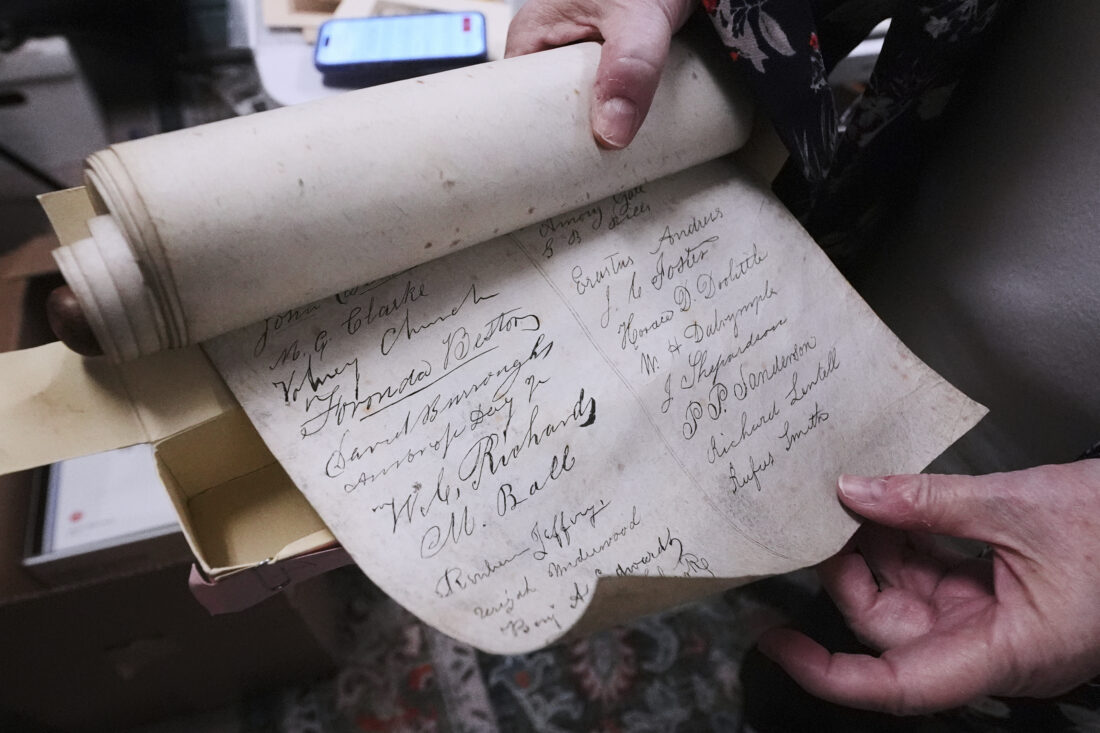 M. G. Clarke
Volney Church
Foronda Bestor
David Burroughs
Ambrose Day Jr
W. C. Richards
M. Ball
Reuben Jeffrey
Underwood
Benj A. Edwards
Amory Gale
G B
Erastus Andrews
J. C Foster
Horace D. Doolittle
W. H Dalrymple
J. Shepardson
P. P. Sanderson
Richard Lentell
Rufus Smith